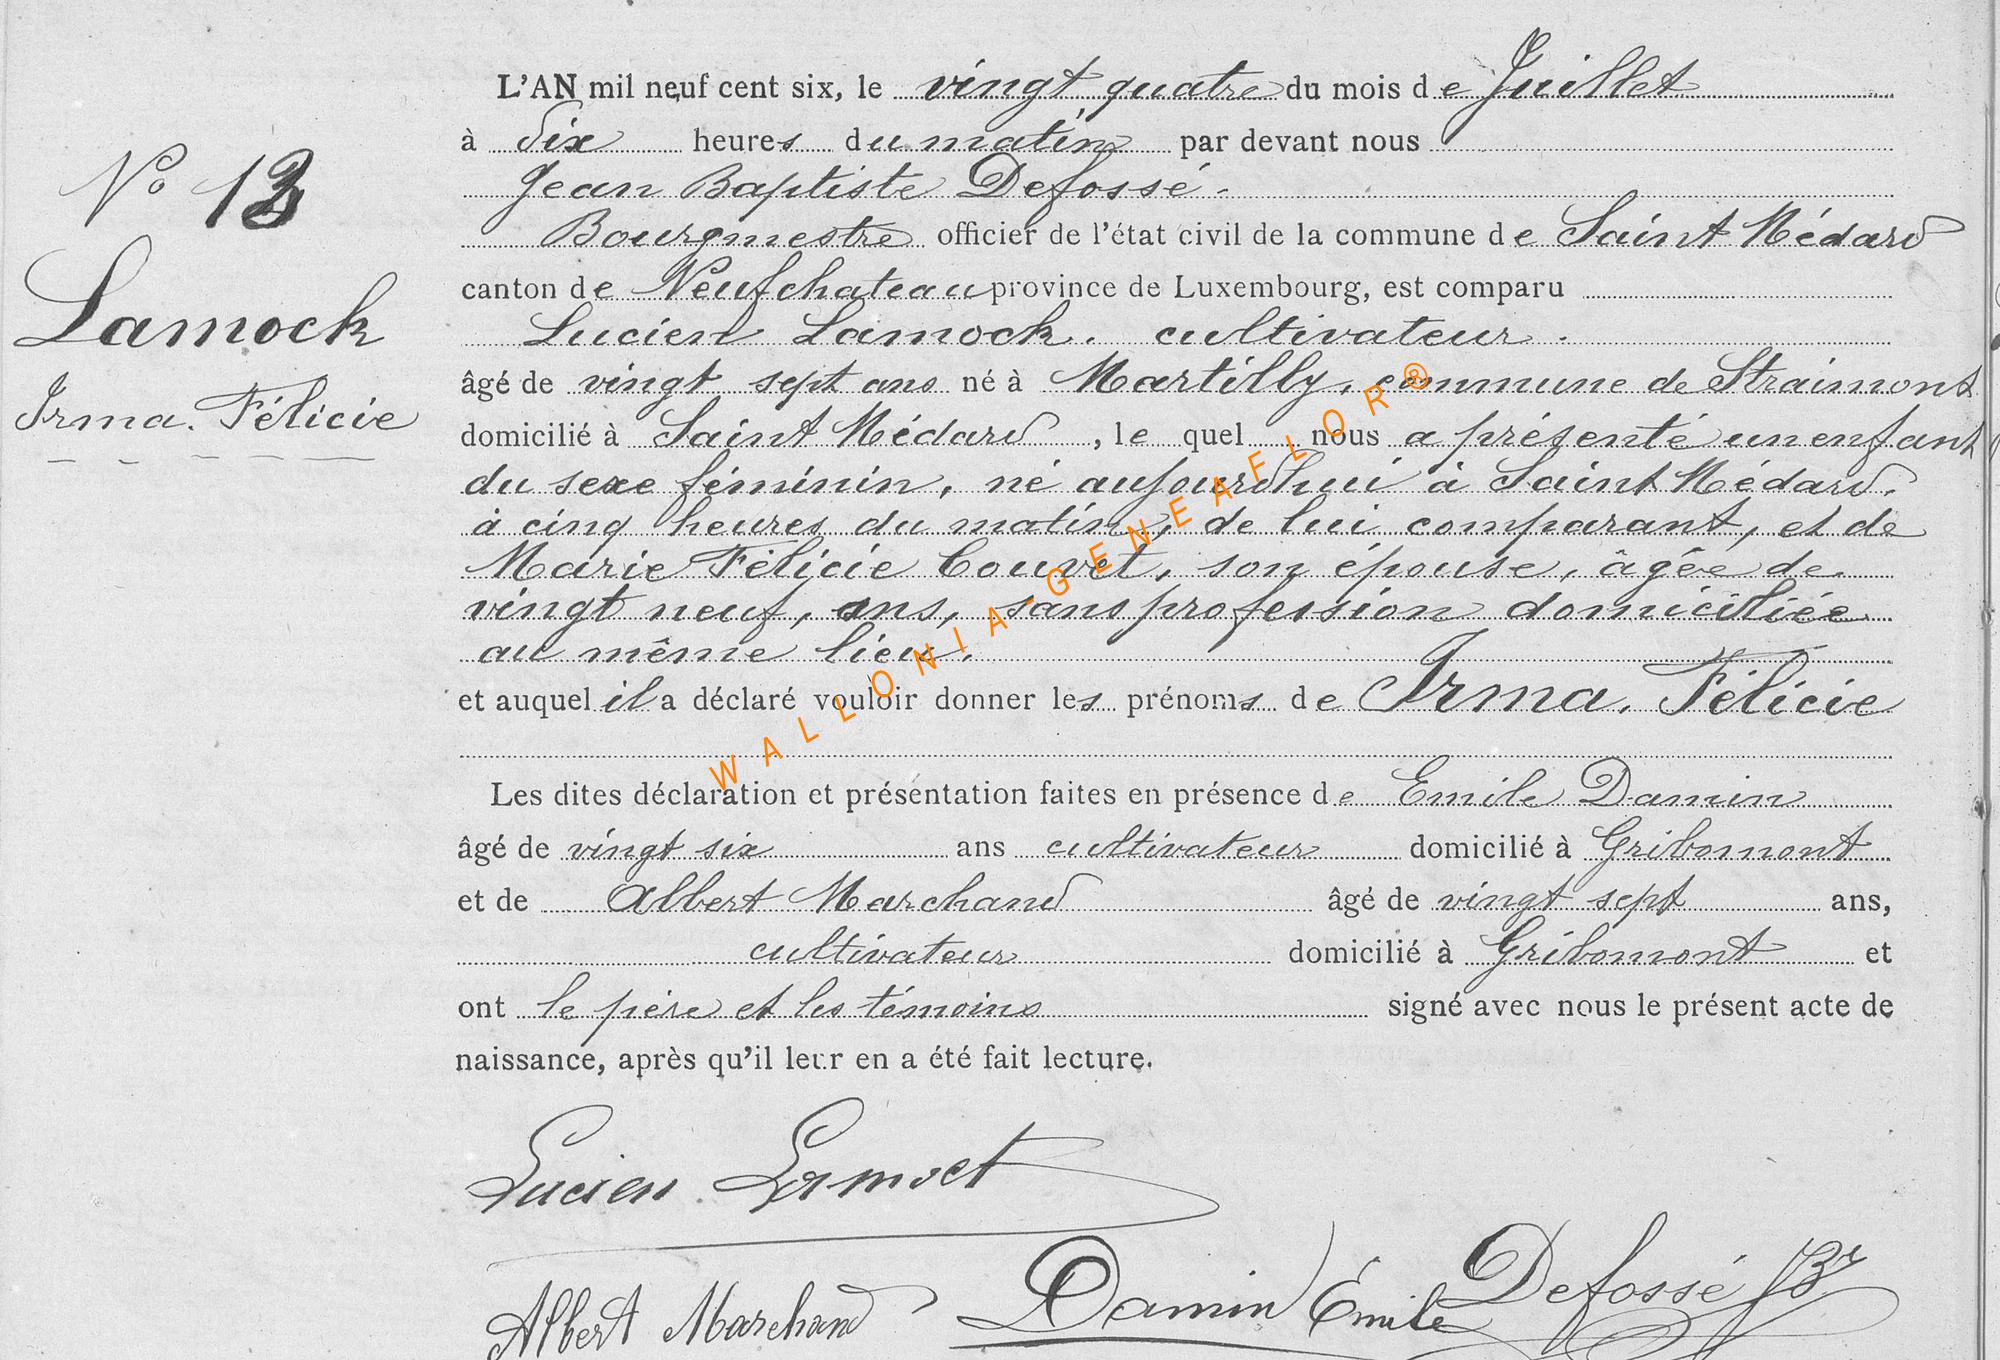 L'AN mil neuf cent six, le vingt quatre du mois de Juillet
à six heures du matin par devant nous
Jean Baptiste Defossé.
Bourgmestre officier de l'état civil de la commune de Saint Médard
canton de Neufchateau province de Luxembourg, est comparu
Lucien Lamock. cultivateur.
âgé de vingt sept ans né à Martilly, commune de Straimont
domicilié à Saint Médard, le quel nous a présenté un enfant
du sexe féminin, né aujourd'hui à Saint Médard,
à cinq heures du matin, de lui comparant, et de
Marie Félicie Couvet, son épouse, âgée de
vingt neuf, ans, sans profession domiciliée
au même lieu.
et auquel il a déclaré vouloir donner les prénoms de Irma. Félicie
Les dites déclaration et présentation faites en présence de Emile Damin
âgé de vingt six ans cultivateur domicilié à Gribomont
et de Albert Marchand âgé de vingt sept ans,
cultivateur domicilié à Gribomont et
ont le père et les témoins signé avec nous le présent acte de
naissance, après qu'il leur en a été fait lecture.
Lucien Lamock
Albert Marchand Damin Emile Defossé JB
No 13
Lamock
Irma. Félicie
WALLONIA-GENEAFLOR®